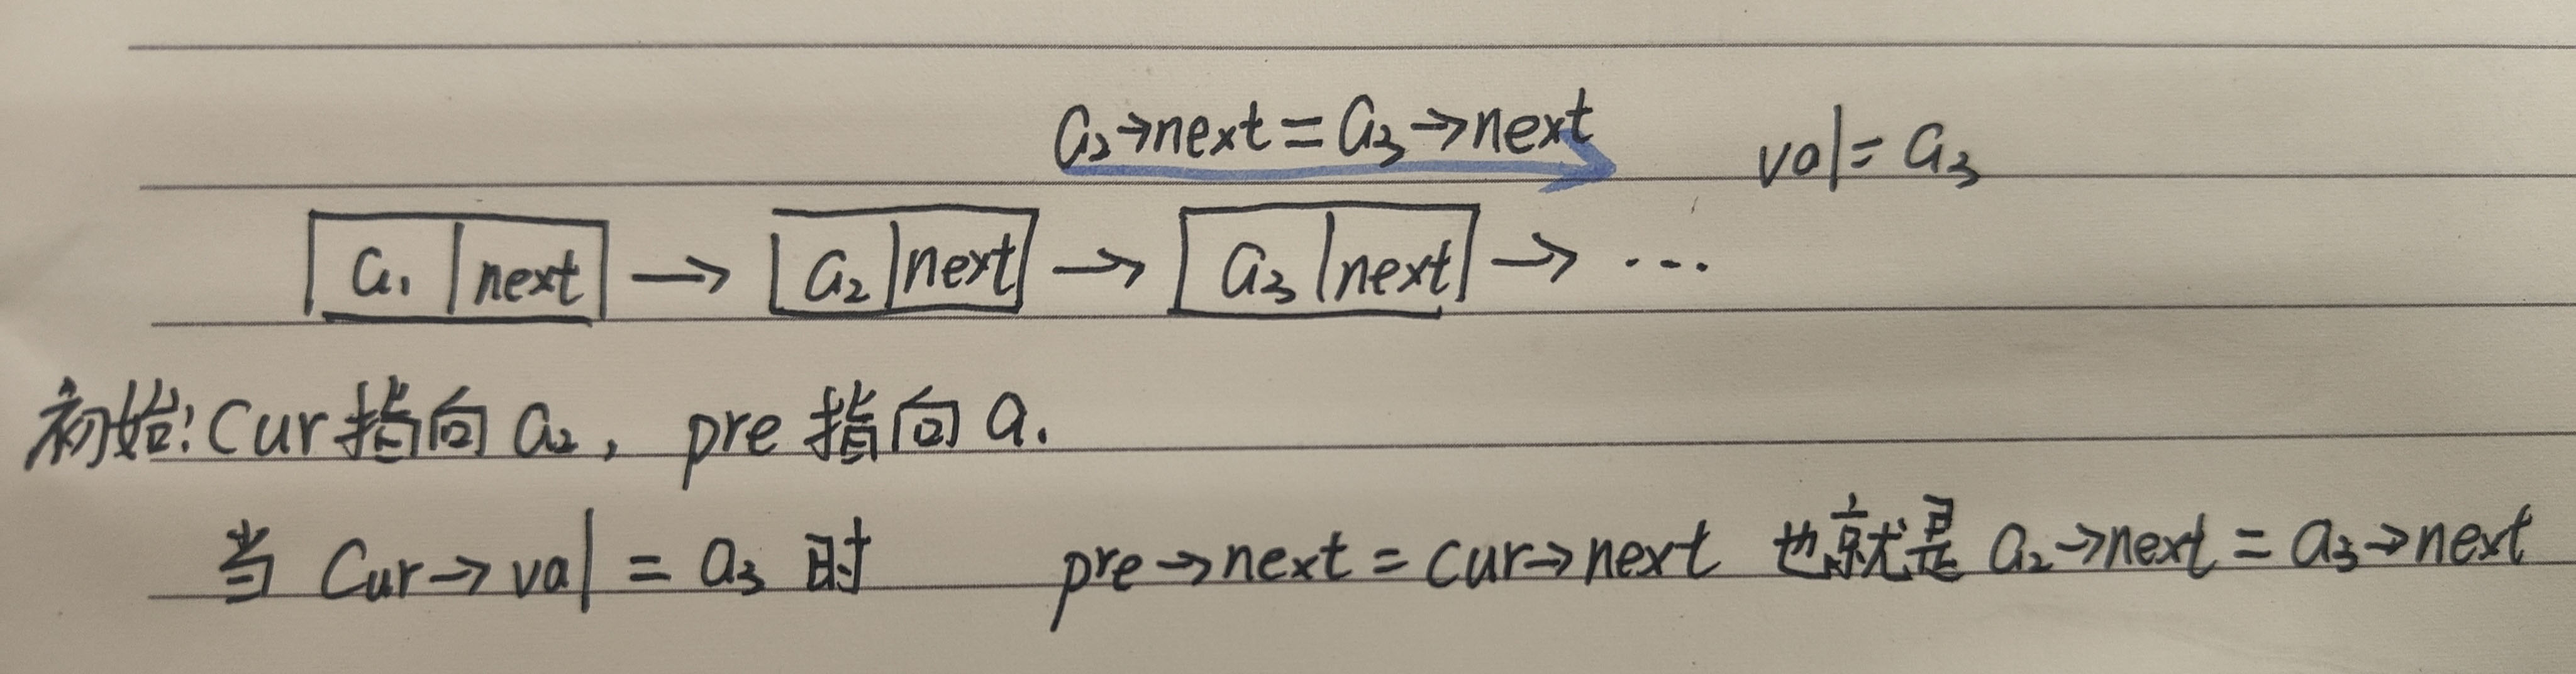 a₂→next=a₃→next val=a₃
a₁ next → a₂ next → a₃ next → ...
初始:Cur指向a₂, pre指向a₁
当 Cur→val = a₃ 时 pre→next = cur→next 也就是 a₂→next = a₃→next